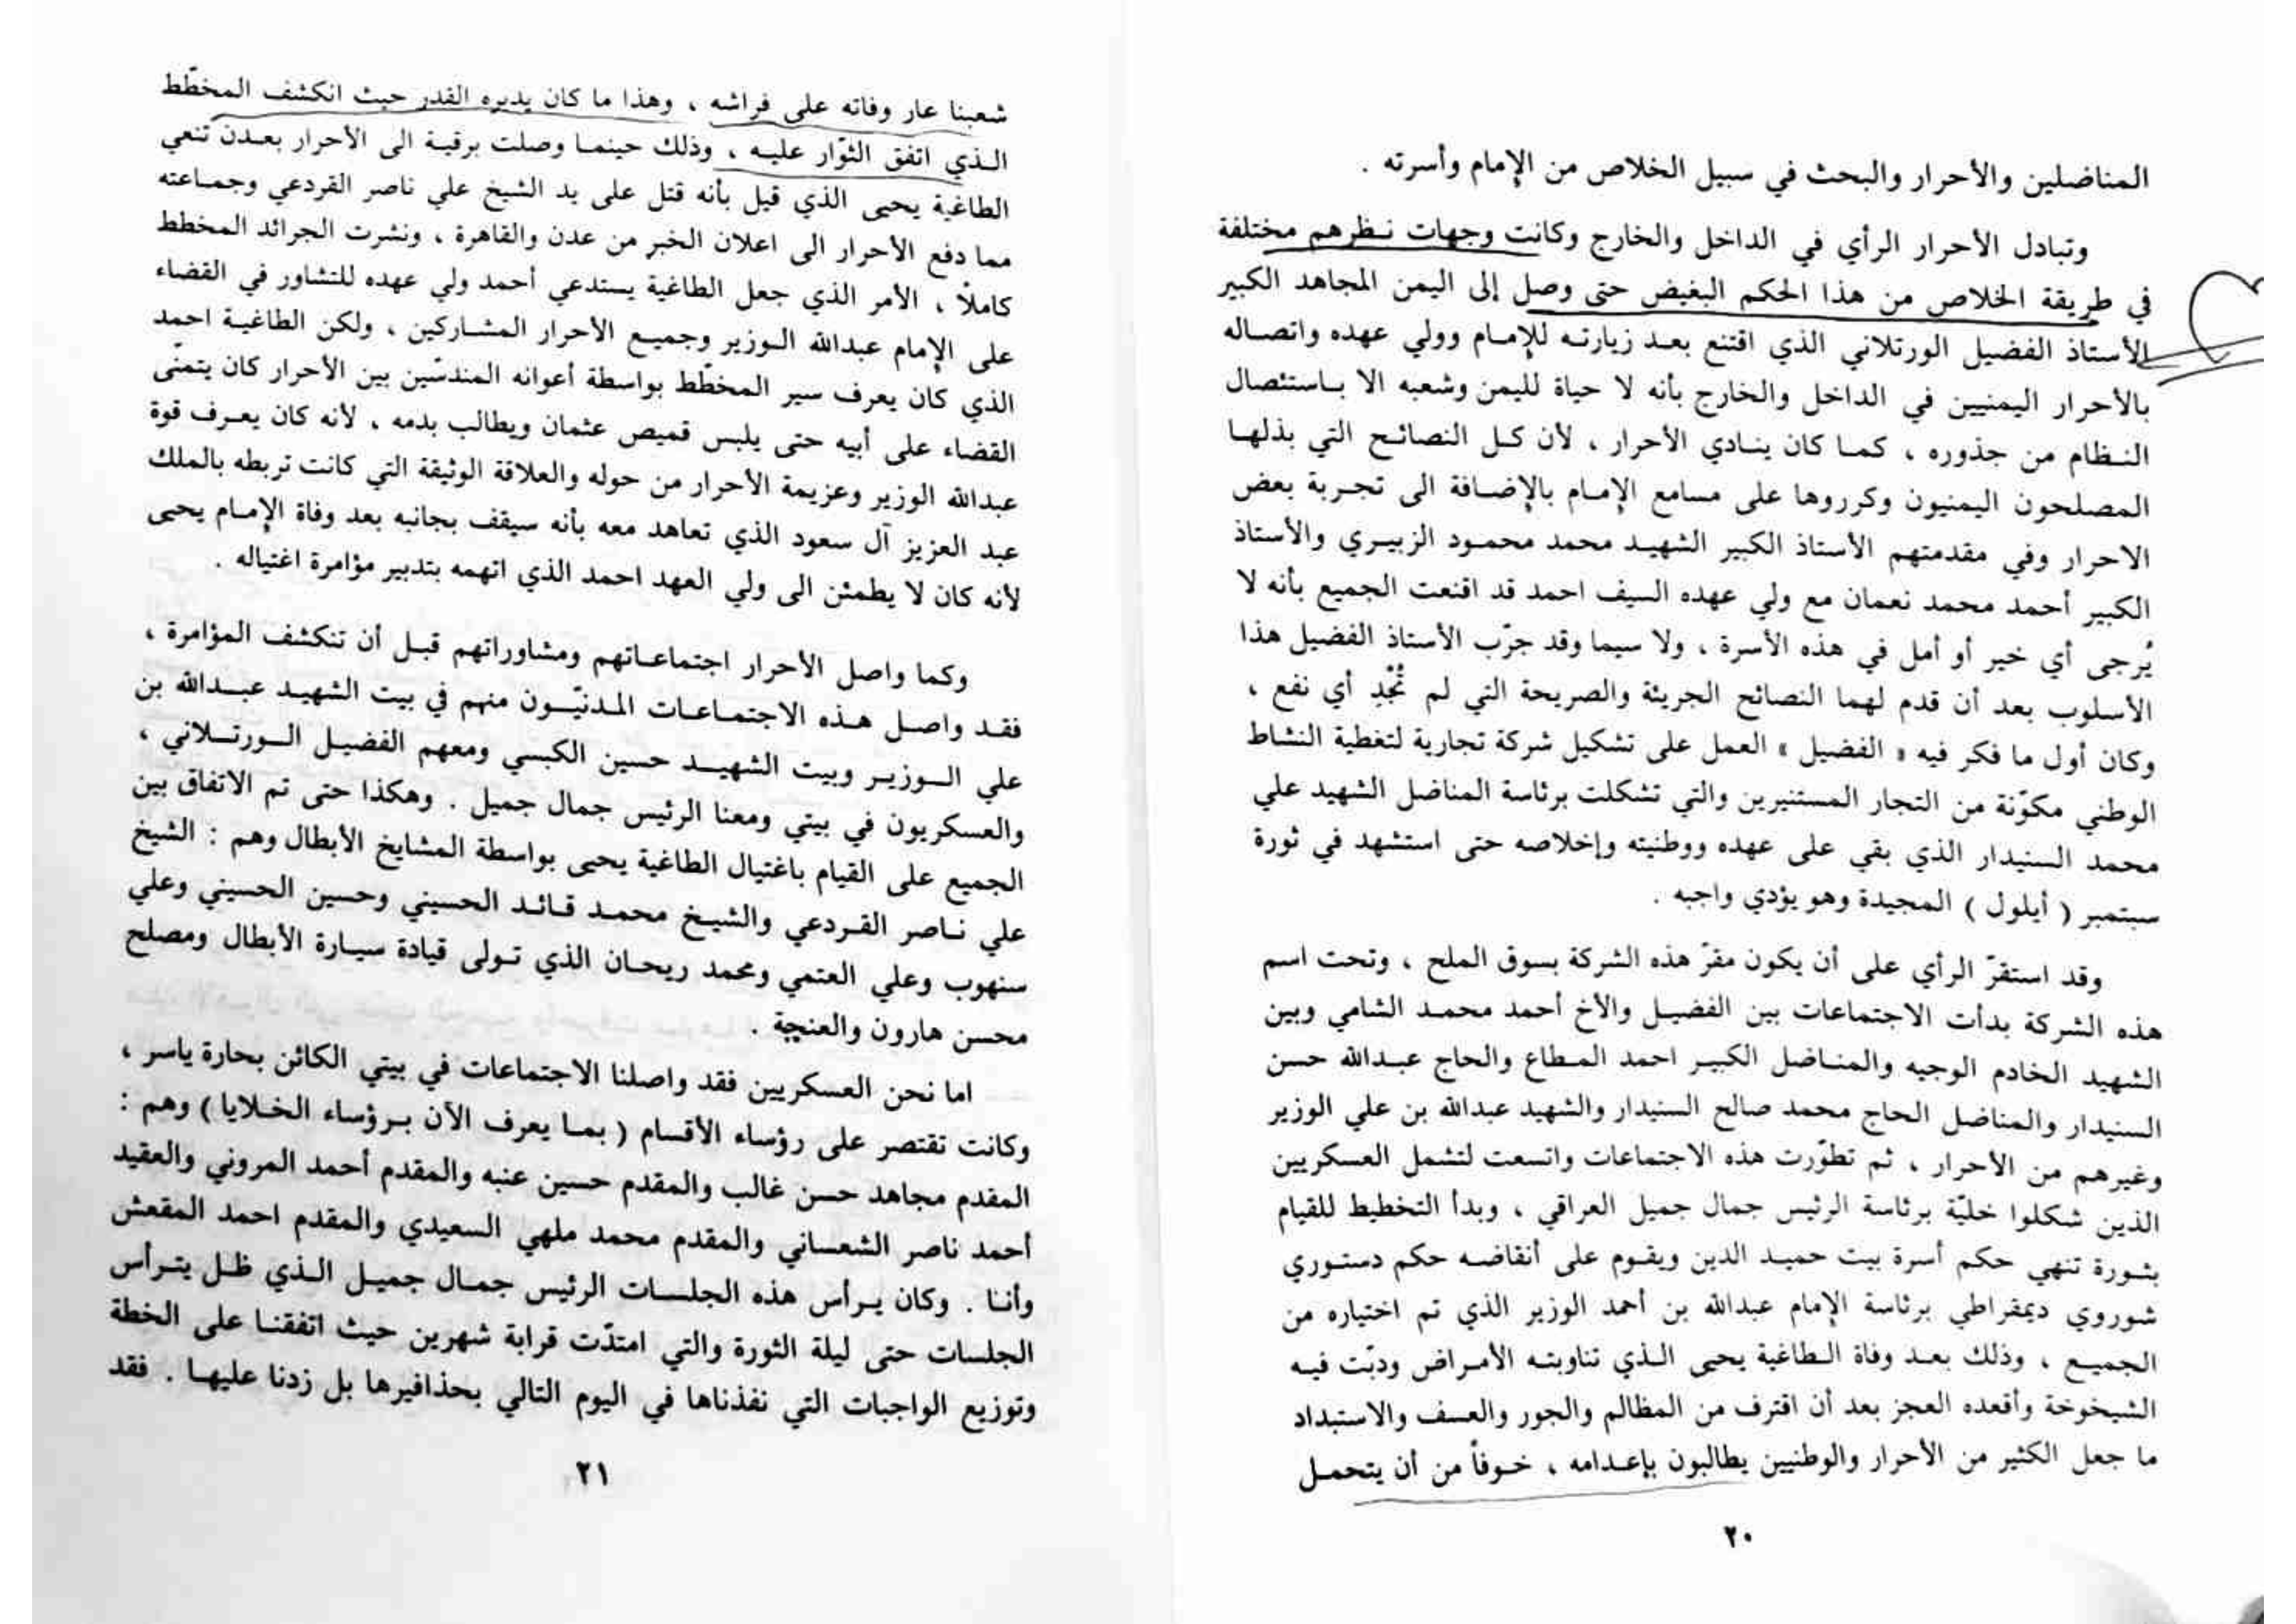 المناضلين والأحرار والبحث في سبيل الخلاص من الإمام وأسرته .
وتبادل الأحرار الرأي في الداخل والخارج وكانت وجهات نـظرهم مختلفة
في طريقة الخلاص من هذا الحكم البغيض حتى وصل إلى اليمن المجاهد الكبير
الأستاذ الفضيل الورتلاني الذي اقتنع بعـد زيارتـه للإمـام وولي عهده واتصـاله
بالأحرار اليمنيين في الداخل والخارج بأنه لا حياة لليمن وشعبه الا بـاستئصال
النـظام من جذوره ، كمـا كان ينـادي الأحرار ، لأن كـل النصائـح التي بذلهـا
المصلحون اليمنيون وكرروها على مسامع الإمـام بالإضـافة الى تجـربة بعض
الاحرار وفي مقدمتهم الأستاذ الكبير الشهيـد محمد محمـود الزبيـري والأستاذ
الكبير أحمد محمد نعمان مع ولي عهده السيف احمد قد اقنعت الجميع بأنه لا
يُرجى أي خير أو أمل في هذه الأسرة ، ولا سيما وقد جرّب الأستاذ الفضيل هذا
الأسلوب بعد أن قدم لهما النصائح الجريئة والصريحة التي لم تُجْدِ أي نفع ،
وكان أول ما فكر فيه « الفضيل » العمل على تشكيل شركة تجارية لتغطية النشاط
الوطني مكوّنة من التجار المستنيرين والتي تشكلت برئاسة المناضل الشهيد علي
محمد السنيدار الذي بقي على عهده ووطنيته وإخلاصه حتى استشهد في ثورة
سبتمبر ( أيلول ) المجيدة وهو يؤدي واجبه .
وقد استقرّ الرأي على أن يكون مقرّ هذه الشركة بسوق الملح ، وتحت اسم
هذه الشركة بدأت الاجتماعات بين الفضيـل والأخ أحمد محمـد الشامي وبين
الشهيد الخادم الوجيه والمنـاضل الكبيـر احمد المـطاع والحاج عبـدالله حسن
السنيدار والمناضل الحاج محمد صالح السنيدار والشهيد عبدالله بن علي الوزير
وغيرهم من الأحرار ، ثم تطوّرت هذه الاجتماعات واتسعت لتشمل العسكريين
الذين شكلوا خليّة برئاسة الرئيس جمال جميل العراقي ، وبدأ التخطيط للقيام
بثـورة تنهي حكم أسرة بيت حميـد الدين ويقـوم على أنقاضـه حكم دستـوري
شوروي ديمقراطي برئاسة الإمام عبدالله بن أحمد الوزير الذي تم اختياره من
الجميـع ، وذلك بعـد وفاة الـطاغية يحيى الـذي تناوبتـه الأمـراض ودبّت فيـه
الشيخوخة وأقعده العجز بعد أن اقترف من المظالم والجور والعسف والاستبداد
ما جعل الكثير من الأحرار والوطنيين يطالبون بإعـدامه ، خـوفاً من أن يتحمـل
٢٠
شعبنا عار وفاته على فراشه ، وهذا ما كان يدبره القدر حيث انكشف المخطّط
الـذي اتفق الثوّار عليـه ، وذلك حينمـا وصلت برقيـة الى الأحرار بعـدن تنعي
الطاغية يحيى الذي قيل بأنه قتل على يد الشيخ علي ناصر القردعي وجمـاعته
مما دفع الأحرار الى اعلان الخبر من عدن والقاهرة ، ونشرت الجرائد المخطط
كاملاً ، الأمر الذي جعل الطاغية يستدعي أحمد ولي عهده للتشاور في القضاء
على الإمام عبدالله الـوزير وجميـع الأحرار المشـاركين ، ولكن الطاغيـة احمد
الذي كان يعرف سير المخطّط بواسطة أعوانه المندسّين بين الأحرار كان يتمنّى
القضاء على أبيه حتى يلبس قميص عثمان ويطالب بدمه ، لأنه كان يعـرف قوة
عبدالله الوزير وعزيمة الأحرار من حوله والعلاقة الوثيقة التي كانت تربطه بالملك
عبد العزيز آل سعود الذي تعاهد معه بأنه سيقف بجانبه بعد وفاة الإمـام يحيى
لأنه كان لا يطمئن الى ولي العهد احمد الذي اتهمه بتدبير مؤامرة اغتياله .
وكما واصل الأحرار اجتماعـاتهم ومشاوراتهم قبـل أن تنكشف المؤامرة ،
فقـد واصـل هـذه الاجتمـاعـات المـدنيّـون منهم في بيت الشهيـد عبـدالله بن
علي الـوزيـر وبيت الشهيـد حسين الكبسي ومعهم الفضيـل الـورتـلاني ،
والعسكريون في بيتي ومعنا الرئيس جمال جميل . وهكذا حتى تم الاتفاق بين
الجميع على القيام باغتيال الطاغية يحيى بواسطة المشايخ الأبطال وهم : الشيخ
علي نـاصر القـردعي والشيـخ محمـد قـائـد الحسيني وحسين الحسيني وعلي
سنهوب وعلي العتمي ومحمد ريحـان الذي تـولى قيادة سيـارة الأبطال ومصلح
محسن هارون والعنجبة .
اما نحن العسكريين فقد واصلنا الاجتماعات في بيتي الكائن بحارة ياسر ،
وكانت تقتصر على رؤساء الأقسام ( بمـا يعرف الآن بـرؤساء الخـلايا ) وهم :
المقدم مجاهد حسن غالب والمقدم حسين عنبه والمقدم أحمد المروني والعقيد
أحمد ناصر الشعساني والمقدم محمد ملهي السعيدي والمقدم احمد المقعش
وأنـا . وكان يـرأس هذه الجلسـات الرئيس جمـال جميـل الـذي ظـل يتـرأس
الجلسات حتى ليلة الثورة والتي امتدّت قرابة شهرين حيث اتفقنـا على الخطة
وتوزيع الواجبات التي نفذناها في اليوم التالي بحذافيرها بل زدنا عليهـا . فقد
٢١